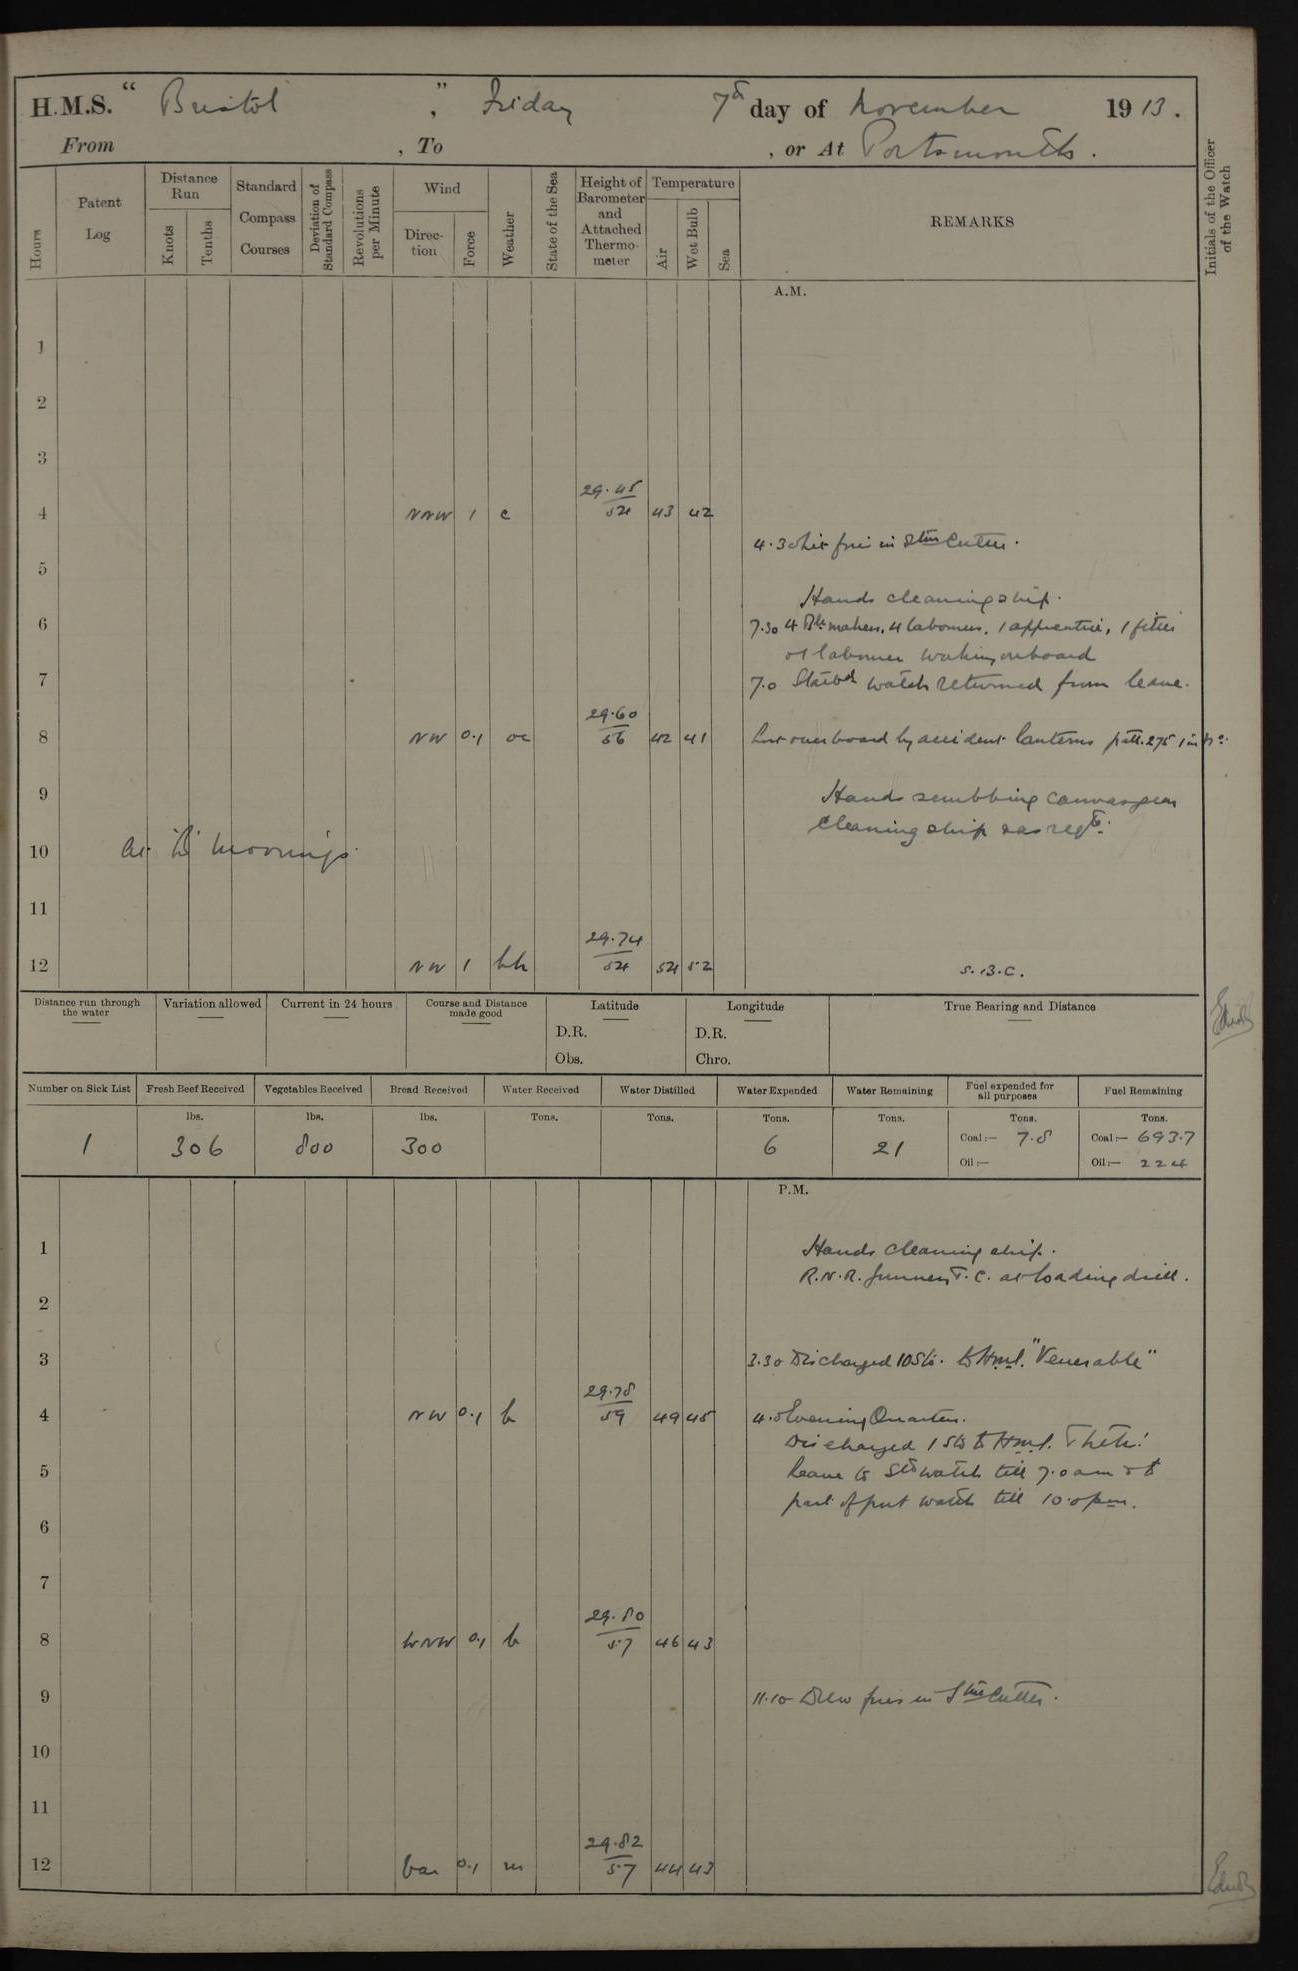 H.M.S. “ Bristol ”, Friday 7th day of November 1913.
From , To , or At Portsmouth.
Hours
Patent Log
Distance Run
Knots
Tenths
Standard Compass Courses
Deviation of Standard Compass
Revolutions per Minute
Wind
Direction
Force
Weather
State of the Sea
Height of Barometer and Attached Thermometer
Temperature
Air
Wet Bulb
Sea
REMARKS
Initials of the Officer of the Watch
A.M.
1
2
3
4 NNW 1 c 29.45 54 43 42
4.30 Lit fire in Stm Cutter.
5
Hands cleaning ship.
6 7.30 4 Blr makers, 4 labourers, 1 apprentice, 1 fitter
& 1 labourer working onboard
7 7.0 Starbd watch returned from leave.
8 NW 0.1 oc 29.60 56 42 41 Lost overboard by accident lanterns patt. 275 1 in No.
9 Hands scrubbing canvas gear
cleaning ship & as reqd.
10 At moorings
11
12 NW 1 bh 29.74 54 54 52 S.B.C.
Distance run through the water
Variation allowed
Current in 24 hours
Course and Distance made good
Latitude
D.R.
Obs.
Longitude
D.R.
Chro.
True Bearing and Distance
Number on Sick List
Fresh Beef Received
Vegetables Received
Bread Received
Water Received
Water Distilled
Water Expended
Water Remaining
Fuel expended for all purposes
Fuel Remaining
lbs. lbs. lbs. Tons. Tons. Tons. Tons. Tons. Tons.
1 306 800 300 6 21 Coal:— 7.8 Coal:— 693.7
Oil:— Oil:— 224
P.M.
1 Hands cleaning ship.
R.N.R. Gunnery T.C. at loading drill.
2
3 3.30 Discharged 10 Sto. to H.M.S. "Venerable"
4 NW 0.1 b 29.78 59 49 45 4.0 Evening Quarters.
Discharged 1 Sto to H.M.S.
5 leave to Std watch till 7.0 am & to
part of port watch till 10.0 pm.
6
7
8 WNW 0.1 b 29.80 57 46 43
9 11.10 Drew fires in Stm Cutter.
10
11
12 0.1 m 29.82 57 44 43